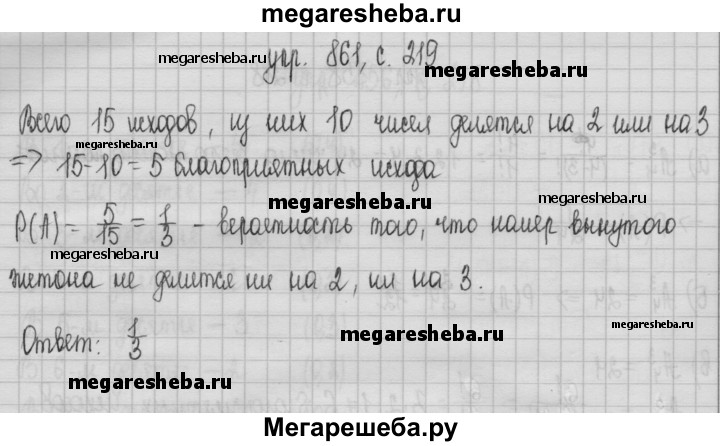 megaresheba.ru
упр. 861, с. 219
megaresheba.ru
megaresheba.ru
Всего 15 исходов, из них 10 чисел делятся на 2 или на 3
megaresheba.ru
=> 15-10 = 5 благоприятных исхода
megaresheba.ru
megaresheba.ru
P(A) = 5/15 = 1/3 - вероятность того, что номер вынутого
megaresheba.ru
жетона не делится ни на 2, ни на 3.
Ответ: 1/3
megaresheba.ru
megaresheba.ru
megaresheba.ru
Мегарешеба.ру